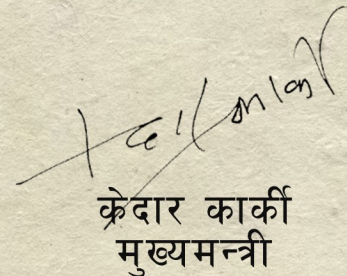 केदार कार्की
मुख्यमन्त्री